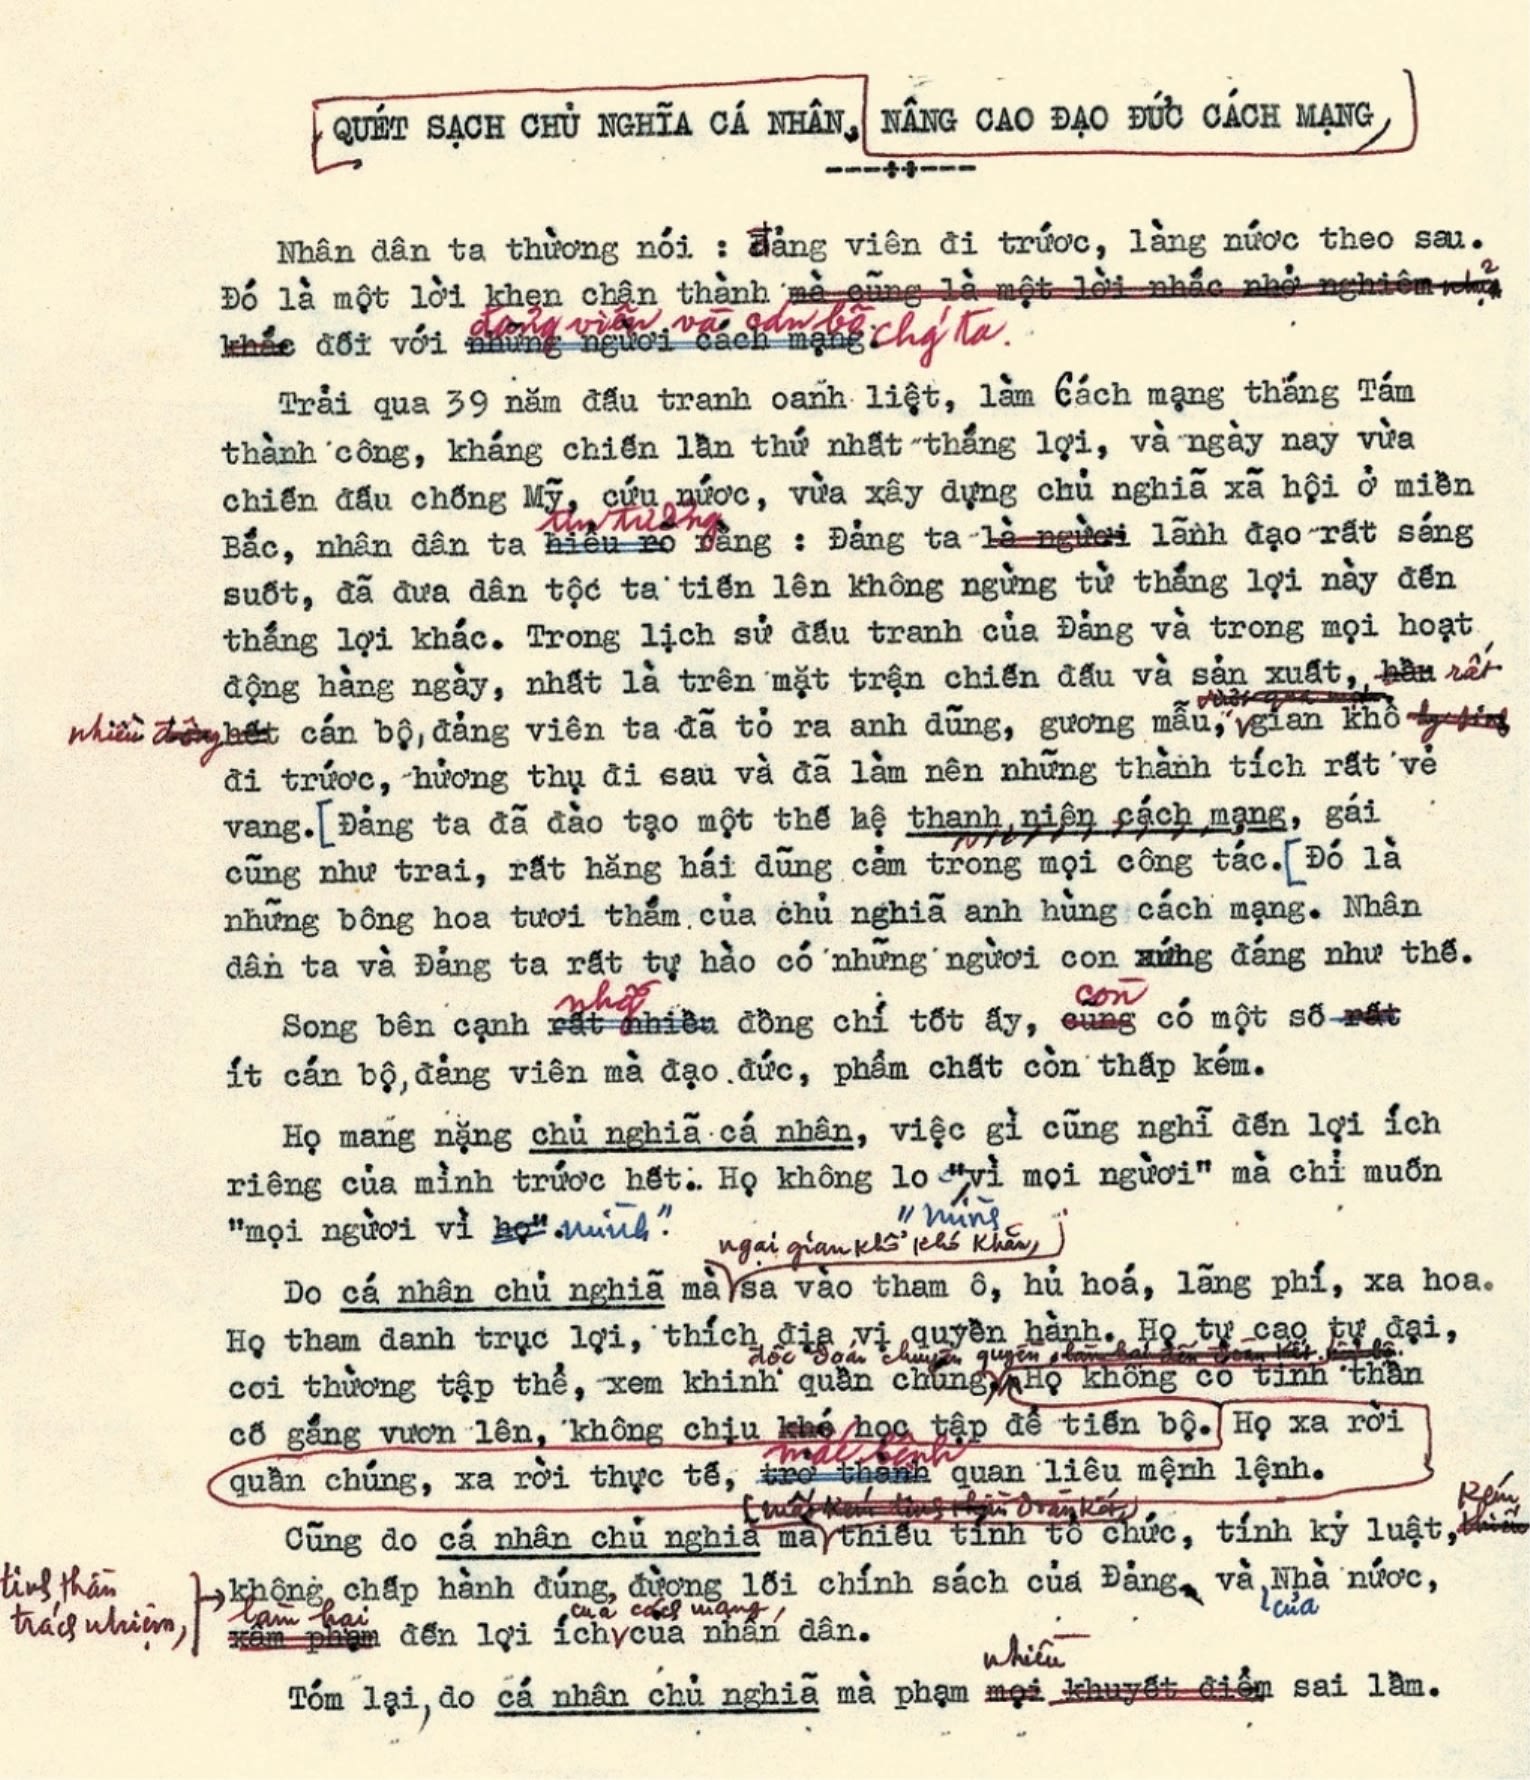 QUÉT SẠCH CHỦ NGHĨA CÁ NHÂN, NÂNG CAO ĐẠO ĐỨC CÁCH MẠNG,
---++---
Nhân dân ta thường nói : đảng viên đi trước, làng nước theo sau.
Đó là một lời khen chân thành mà cũng là một lời nhắc nhở nghiêm
đảng viên và cán bộ chúng ta.
khắc đối với những người cách mạng.
Trải qua 39 năm đấu tranh oanh liệt, làm Cách mạng tháng Tám
thành công, kháng chiến lần thứ nhất thắng lợi, và ngày nay vừa
chiến đấu chống Mỹ, cứu nước, vừa xây dựng chủ nghiã xã hội ở miền
tin tưởng
Bắc, nhân dân ta hiểu rõ rằng : Đảng ta là người lãnh đạo rất sáng
suốt, đã đưa dân tộc ta tiến lên không ngừng từ thắng lợi này đến
thắng lợi khác. Trong lịch sử đấu tranh của Đảng và trong mọi hoạt
động hàng ngày, nhất là trên mặt trận chiến đấu và sản xuất, hầu rất
nhiều đồng hết cán bộ, đảng viên ta đã tỏ ra anh dũng, gương mẫu, gian khổ
đi trước, hưởng thụ đi sau và đã làm nên những thành tích rất vẻ
vang. [Đảng ta đã đào tạo một thế hệ thanh niên cách mạng, gái
cũng như trai, rất hăng hái dũng cảm trong mọi công tác. [Đó là
những bông hoa tươi thắm của chủ nghiã anh hùng cách mạng. Nhân
dân ta và Đảng ta rất tự hào có những người con xứng đáng như thế.
những còn
Song bên cạnh rất nhiều đồng chí tốt ấy, cũng có một số rất
ít cán bộ, đảng viên mà đạo đức, phẩm chất còn thấp kém.
Họ mang nặng chủ nghiã cá nhân, việc gì cũng nghĩ đến lợi ích
riêng của mình trước hết. Họ không lo "vì mọi người" mà chỉ muốn
"mọi người vì họ". mình".
"mình
ngại gian khổ khó khăn,
Do cá nhân chủ nghiã mà sa vào tham ô, hủ hoá, lãng phí, xa hoa.
Họ tham danh trục lợi, thích địa vị quyền hành. Họ tự cao tự đại,
độc đoán chuyên quyền, làm hại đến đoàn kết nội bộ.
coi thường tập thể, xem khinh quần chúng, Họ không có tinh thần
cố gắng vươn lên, không chịu khó học tập để tiến bộ. Họ xa rời
mắc bệnh
quần chúng, xa rời thực tế, trở thành quan liêu mệnh lệnh.
đoàn kết,
Cũng do cá nhân chủ nghiã mà thiếu tính tổ chức, tính kỷ luật, thiếu
kém
tinh thần
trách nhiệm,
không chấp hành đúng đường lối chính sách của Đảng và Nhà nước,
của
làm hại của cách mạng,
xâm phạm đến lợi ích của nhân dân.
nhiều
Tóm lại, do cá nhân chủ nghiã mà phạm mọi khuyết điểm sai lầm.